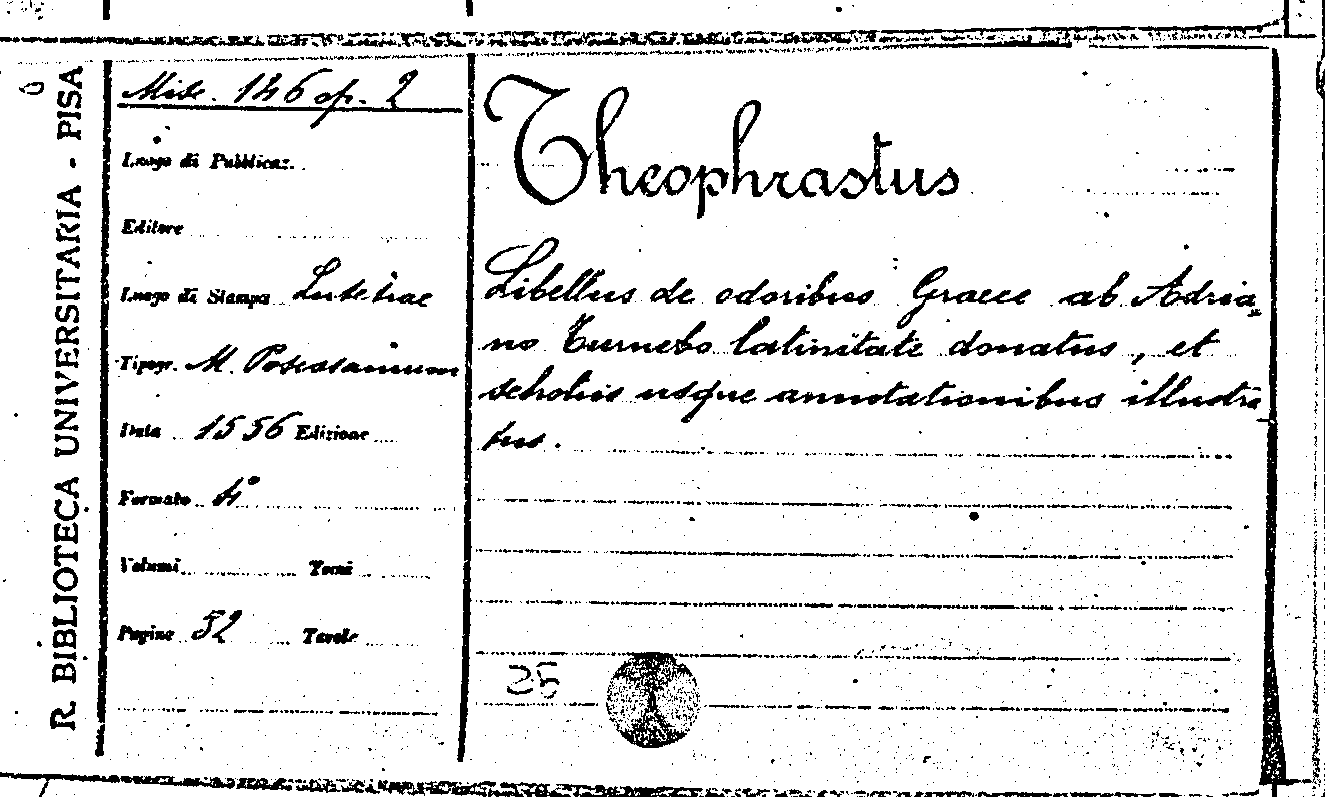 R. BIBLIOTECA UNIVERSITARIA - PISA
Misc. 146 op. 2
Luogo di Pubblicaz.
Editore
Luogo di Stampa Lutetiae
Tipogr. M.
Data 1556 Edizione
Formato 4°
Volumi Tomi
Pagine 52 Tavole
Theophrastus
Libellus de odoribus Graece ab Adria
no Turnebo latinitate donatus, et
scholiis usque annotationibus illustra
tus.
25